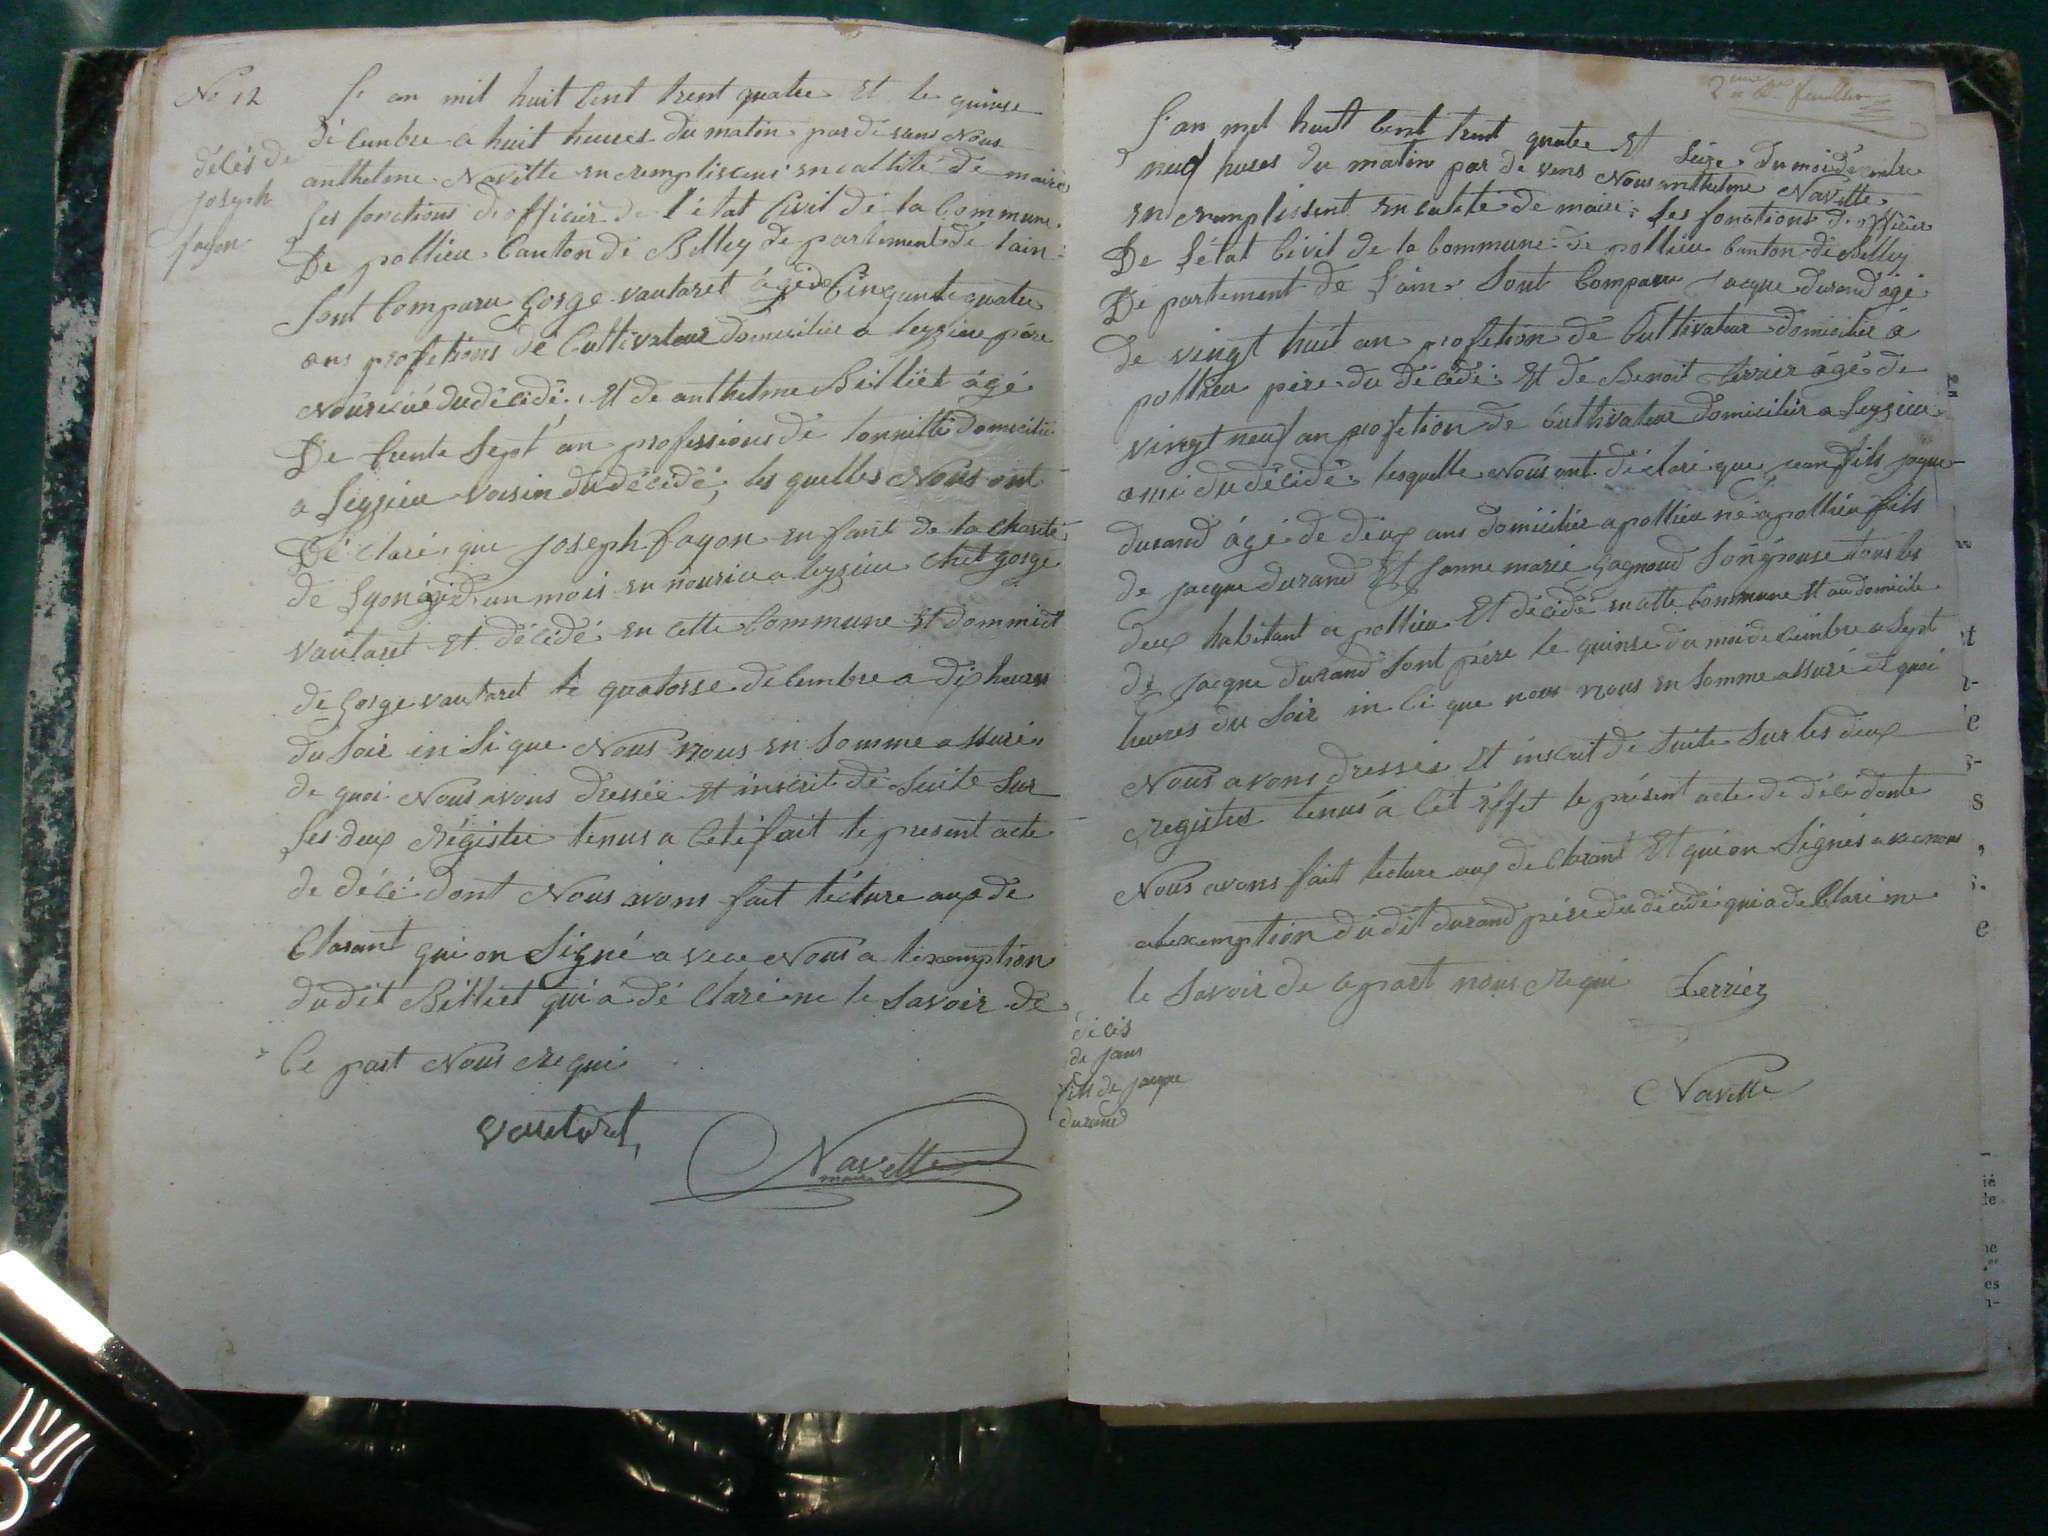 No 12
décès de
joseph
fayon
L'an mil huit Cent trent quatre Et le quinse
décembre a huit heures du matin pardevans Nous
anthelme Navette en remplisent en callité de maire
les fonctions de officier de l'état Civil de la Commune
De pollieu Canton de Belley departement de lain
sont Comparu gorge vautaret âgé de Cinquante quatre
ans profetions de Cultivateur domicilié a leyzieu père
nouricié du décédé, Et de anthelme Billiet âgé
De trente Sept an professions de domicilié
a leyzieu voisin du décédé, les quelles Nous ont
Dé claré que joseph fayon enfant de la charité
de Lyon âgé d'un mois en nourice a leyzieu chet gorge
vautaret Et décédé en cette Commune Et dommicil
de gorge vautaret le quatorse décembre a dix heures
du soir in si que Nous nous en somme assuré
de quoi Nous avons dressée et inscrit de Suite Sur
les deux régistre tenus a Cet éfait le present acte
de décé dont Nous avons fait lécture aux de
Clarant qui on Signé a vec Nous a l'exemption
dudit Billiet qui a dé Claré ne le Savoir de
Ce part Nous requi
vautaret
Navette
maire
2eme feuillet
L'an mil huit Cent trent quatre Et seize du moi décembre
neuf heures du matin par de vens Nous anthelme Navette
en remplissent en calité de maire les fonctions de officier
De l'état Civil de la Commune de pollieu Canton de Belley
Département de l'ain sont Comparu Jacque durand âgé
de vingt huit an profetion de Cultivateur domicilié à
pollieu père du décédé Et de Benoit terrier âgé de
vingt neuf an profetion de Cultivateur domicilié a leyzieu
ami du décédé lesquelle Nous ont déclaré que jean fils jaque
durand âgé de deux ans domicilié a pollieu né a pollieu fils
de jacque durand Et janne marie gagnoud son épouse tous les
deux habitant a pollieu Et décédé en cette Commune Et au domicile
de jacque durand sont père le quinse du moi décembre a Sept
heures du soir in Ci que nous nous en somme assuré de quoi
Nous avons dressés Et inscrit de suite sur les deux
registres tenus à Cét éffet le présent acte de décé donte
Nous avons fait lecture aux de clarant Et qui on Signés avec nous
a lexemption dudit durand père du décédé qui a de Claré ne
le Savoir de apart nous requi
Terrier
décès
de jean
fils de jacque
durand
Navette